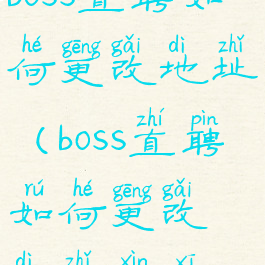 boss直聘如
hé gēng gǎi dì zhǐ
何更改地址
zhí pìn
(boss直聘
rú hé gēng gǎi
如何更改
dì zhǐ xìn xī